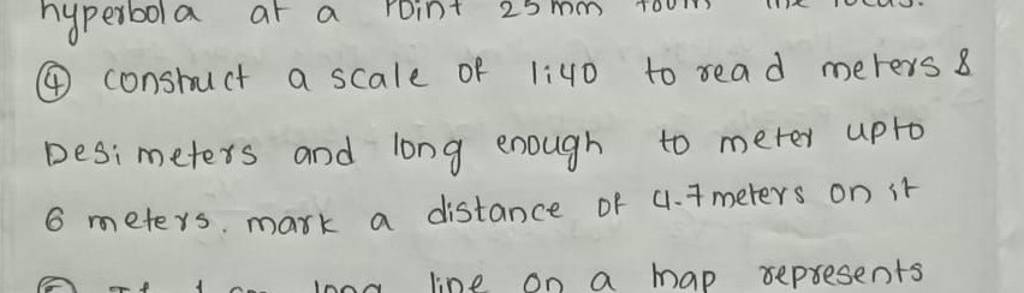 hyperbola at a Point 25 mm from the focus.
④ construct a scale of 1:40 to read meters &
Desimeters and long enough to meter upto
6 meters. mark a distance of 4.7 meters on it
long line on a map represents